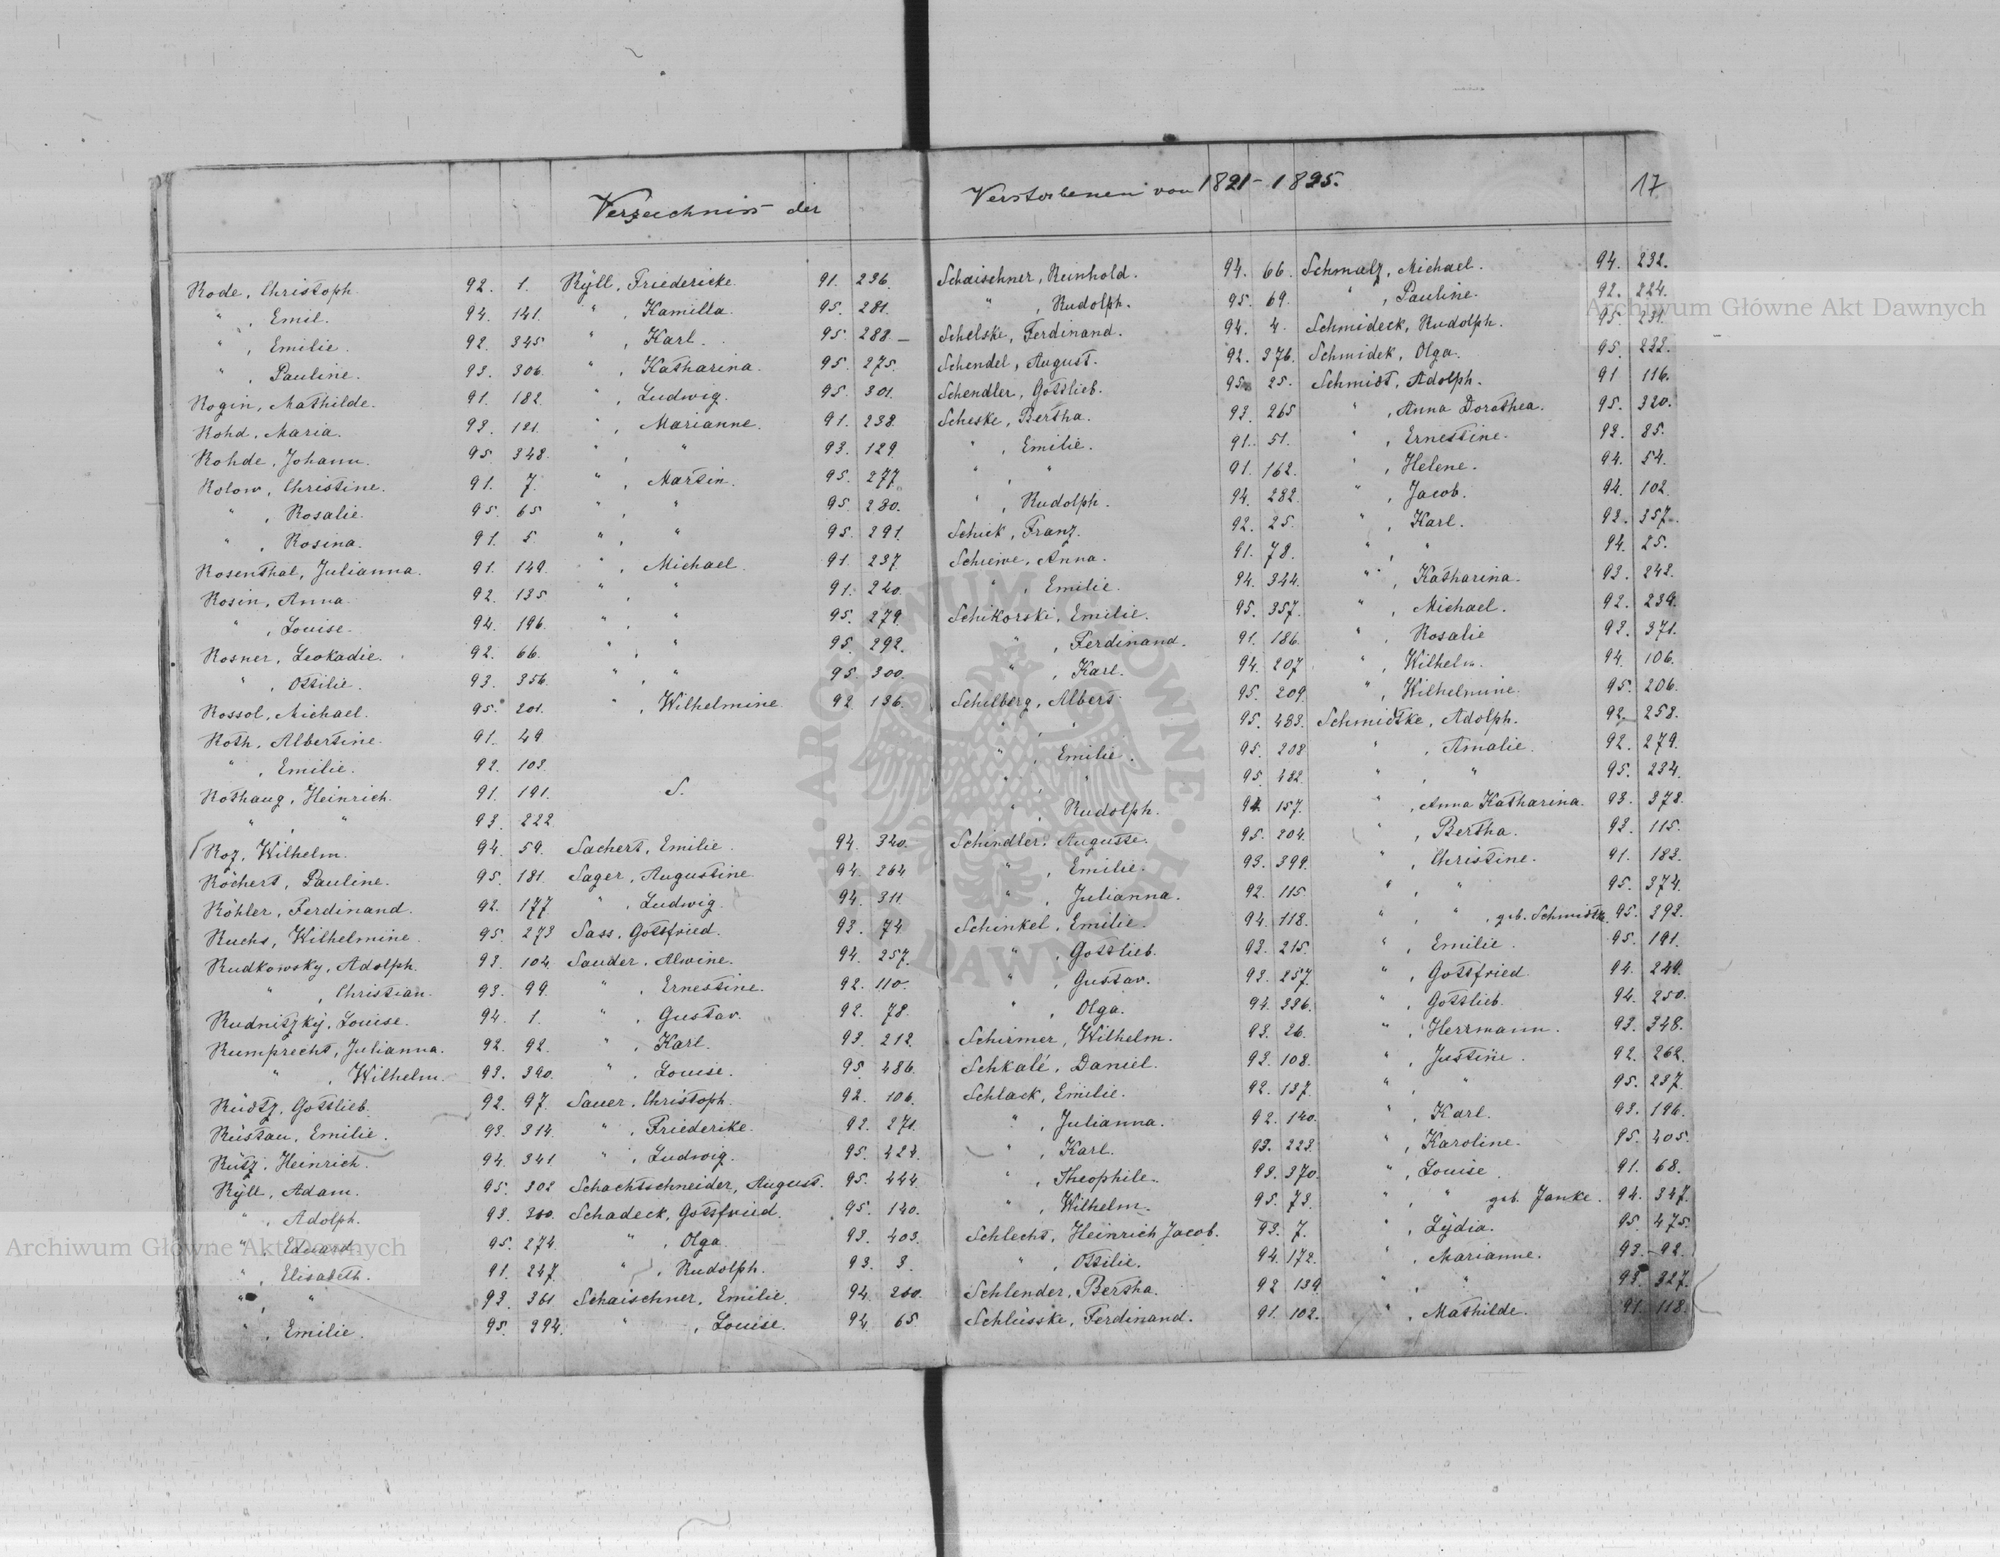 Verzeichniss der Verstorbenen von 1891-1895. 17
Rode, Christoph 92. 1.
" , Emil. 94. 141.
" , Emilie. 92. 345
" , Pauline. 93. 306.
Rogin, Mathilde. 91. 182.
Rohd, Maria. 93. 121.
Rohde, Johann. 95. 348.
Rolow, Christine. 91. 7.
" , Rosalie. 95. 65
" , Rosina. 91. 5.
Rosenthal, Julianna. 91. 149.
Rosin, Anna. 92. 135
" , Louise. 94. 196.
Rosner, Leokadie. 92. 66.
" , Ottilie. 93. 356.
Rossol, Michael. 95. 201.
Roth, Albertine. 91. 49
" , Emilie. 92. 103.
Rothaug, Heinrich. 91. 191.
" , " 93. 222.
Roz, Wilhelm. 94. 59.
Röchert, Pauline. 95. 181.
Röhler, Ferdinand. 92. 177.
Ruchs, Wilhelmine. 95. 273
Rudkowsky, Adolph. 93. 104.
" , Christian. 93. 99.
Rudnitzkÿ, Louise. 94. 1.
Rumprecht, Julianna. 92. 92.
" , Wilhelm. 93. 340.
Rüdtz, Gottlieb. 92. 97.
Rüstau, Emilie. 93. 314.
Rütz, Heinrich. 94. 341
Rÿll, Adam. 95. 302
" , Adolph. 93.
" , Eduard. 95. 274.
" , Elisabeth. 91. 247.
" , " 93. 361
" , Emilie. 95. 294.
Rÿll, Friedericke 91. 236.
" , Kamilla. 95. 281.
" , Karl. 95. 288.
" , Katharina. 95. 275.
" , Ludwig. 95. 301.
" , Marianne. 91. 238.
" , " 93. 129.
" , Martin. 95. 277.
" , " 95. 280.
" , " 95. 291.
" , Michael. 91. 237.
" , " 91. 240.
" , " 95. 279.
" , " 95. 292.
" , " 95. 300.
" , Wilhelmine. 92. 136.
S.
Sachert, Emilie. 94. 340.
Sager, Augustine 94. 264
" , Ludwig. 94. 311.
Sass, Gottfried. 93. 74
Sauder, Alwine. 94. 257.
" , Ernestine. 92. 110.
" , Gustav. 92. 78.
" , Karl. 93. 212.
" , Louise. 95. 486.
Sauer, Christoph. 92. 106.
" , Friederike. 92. 271.
" , Ludwig. 95. 424.
Schachtschneider, August. 95. 444.
Schadeck, Gottfried. 95. 140.
" , Olga. 93. 403.
" , Rudolph. 93. 3.
Schaischner, Emilie. 94. 260.
" , Louise. 94. 65.
Schaischner, Reinhold. 94. 66.
" , Rudolph. 95. 69.
Schelske, Ferdinand. 94. 4.
Schendel, August. 92. 376.
Schendler, Gottlieb. 95. 25.
Scheske, Bertha. 93. 265
" , Emilie. 91. 51.
" , " 91. 162.
" , Rudolph. 94. 282.
Schick, Franz. 92. 25.
Schiewe, Anna. 91. 78.
" , Emilie. 94. 344.
Schikorski, Emilie. 95. 357.
" , Ferdinand. 91. 186.
" , Karl. 94. 207
Schilberg, Albert. 95. 209.
" , " 95. 433.
" , Emilie. 95. 208
" , " 95. 432.
" , Rudolph. 157.
Schindler, Auguste. 95. 204.
" , Emilie. 93. 399.
" , Julianna. 92. 115.
Schinkel, Emilie. 94. 118.
" , Gottlieb. 93. 215.
" , Gustav. 93. 257.
" , Olga. 94. 336.
Schirmer, Wilhelm. 93. 26.
Schkalé, Daniel. 93. 108.
Schlack, Emilie. 92. 137.
" , Julianna. 92. 140.
" , Karl. 93. 223.
" , Theophile. 93. 370.
" , Wilhelm. 95. 73.
Schlecht, Heinrich Jacob. 93. 7.
" , Ottilie. 94. 172.
Schlender, Bertha. 92 139.
Schlüsske, Ferdinand. 91. 102.
Schmalz, Michael. 94. 232.
" , Pauline. 92. 224.
Schmideck, Rudolph. 95. 231.
Schmidek, Olga. 95. 222.
Schmidt, Adolph. 91 116.
" , Anna Dorothea. 95. 320.
" , Ernestine. 93. 85.
" , Helene. 94. 54.
" , Jacob. 94. 102.
" , Karl. 92. 357.
" , " 94. 25.
" , Katharina. 93. 242.
" , Michael. 92. 239.
" , Rosalie 93. 371.
" , Wilhelm. 94. 106.
" , Wilhelmine. 95. 206.
Schmidtke, Adolph. 92. 258.
" , Amalie. 92. 279.
" , " 95. 234.
" , Anna Katharina. 93. 378.
" , Bertha. 93. 115.
" , Christine. 91. 183.
" , " 95. 374.
" , " , geb. 95. 292.
" , Emilie. 95. 191.
" , Gottfried. 94. 249.
" , Gottlieb. 94. 250.
" , Herrmann. 93. 348.
" , Justine. 92. 262.
" , " 95. 237.
" , Karl. 93. 196.
" , Karoline. 95. 405.
" , Louise 91. 68.
" , " geb. Janke. 94. 347.
" , Lÿdia. 95. 475.
" , Marianne. 93. 92.
" , " 93. 327.
" , Mathilde. 91. 118.
Archiwum Główne Akt Dawnych
Archiwum Główne Akt Dawnych
ARCHIWUM GŁÓWNE AKT DAWNYCH